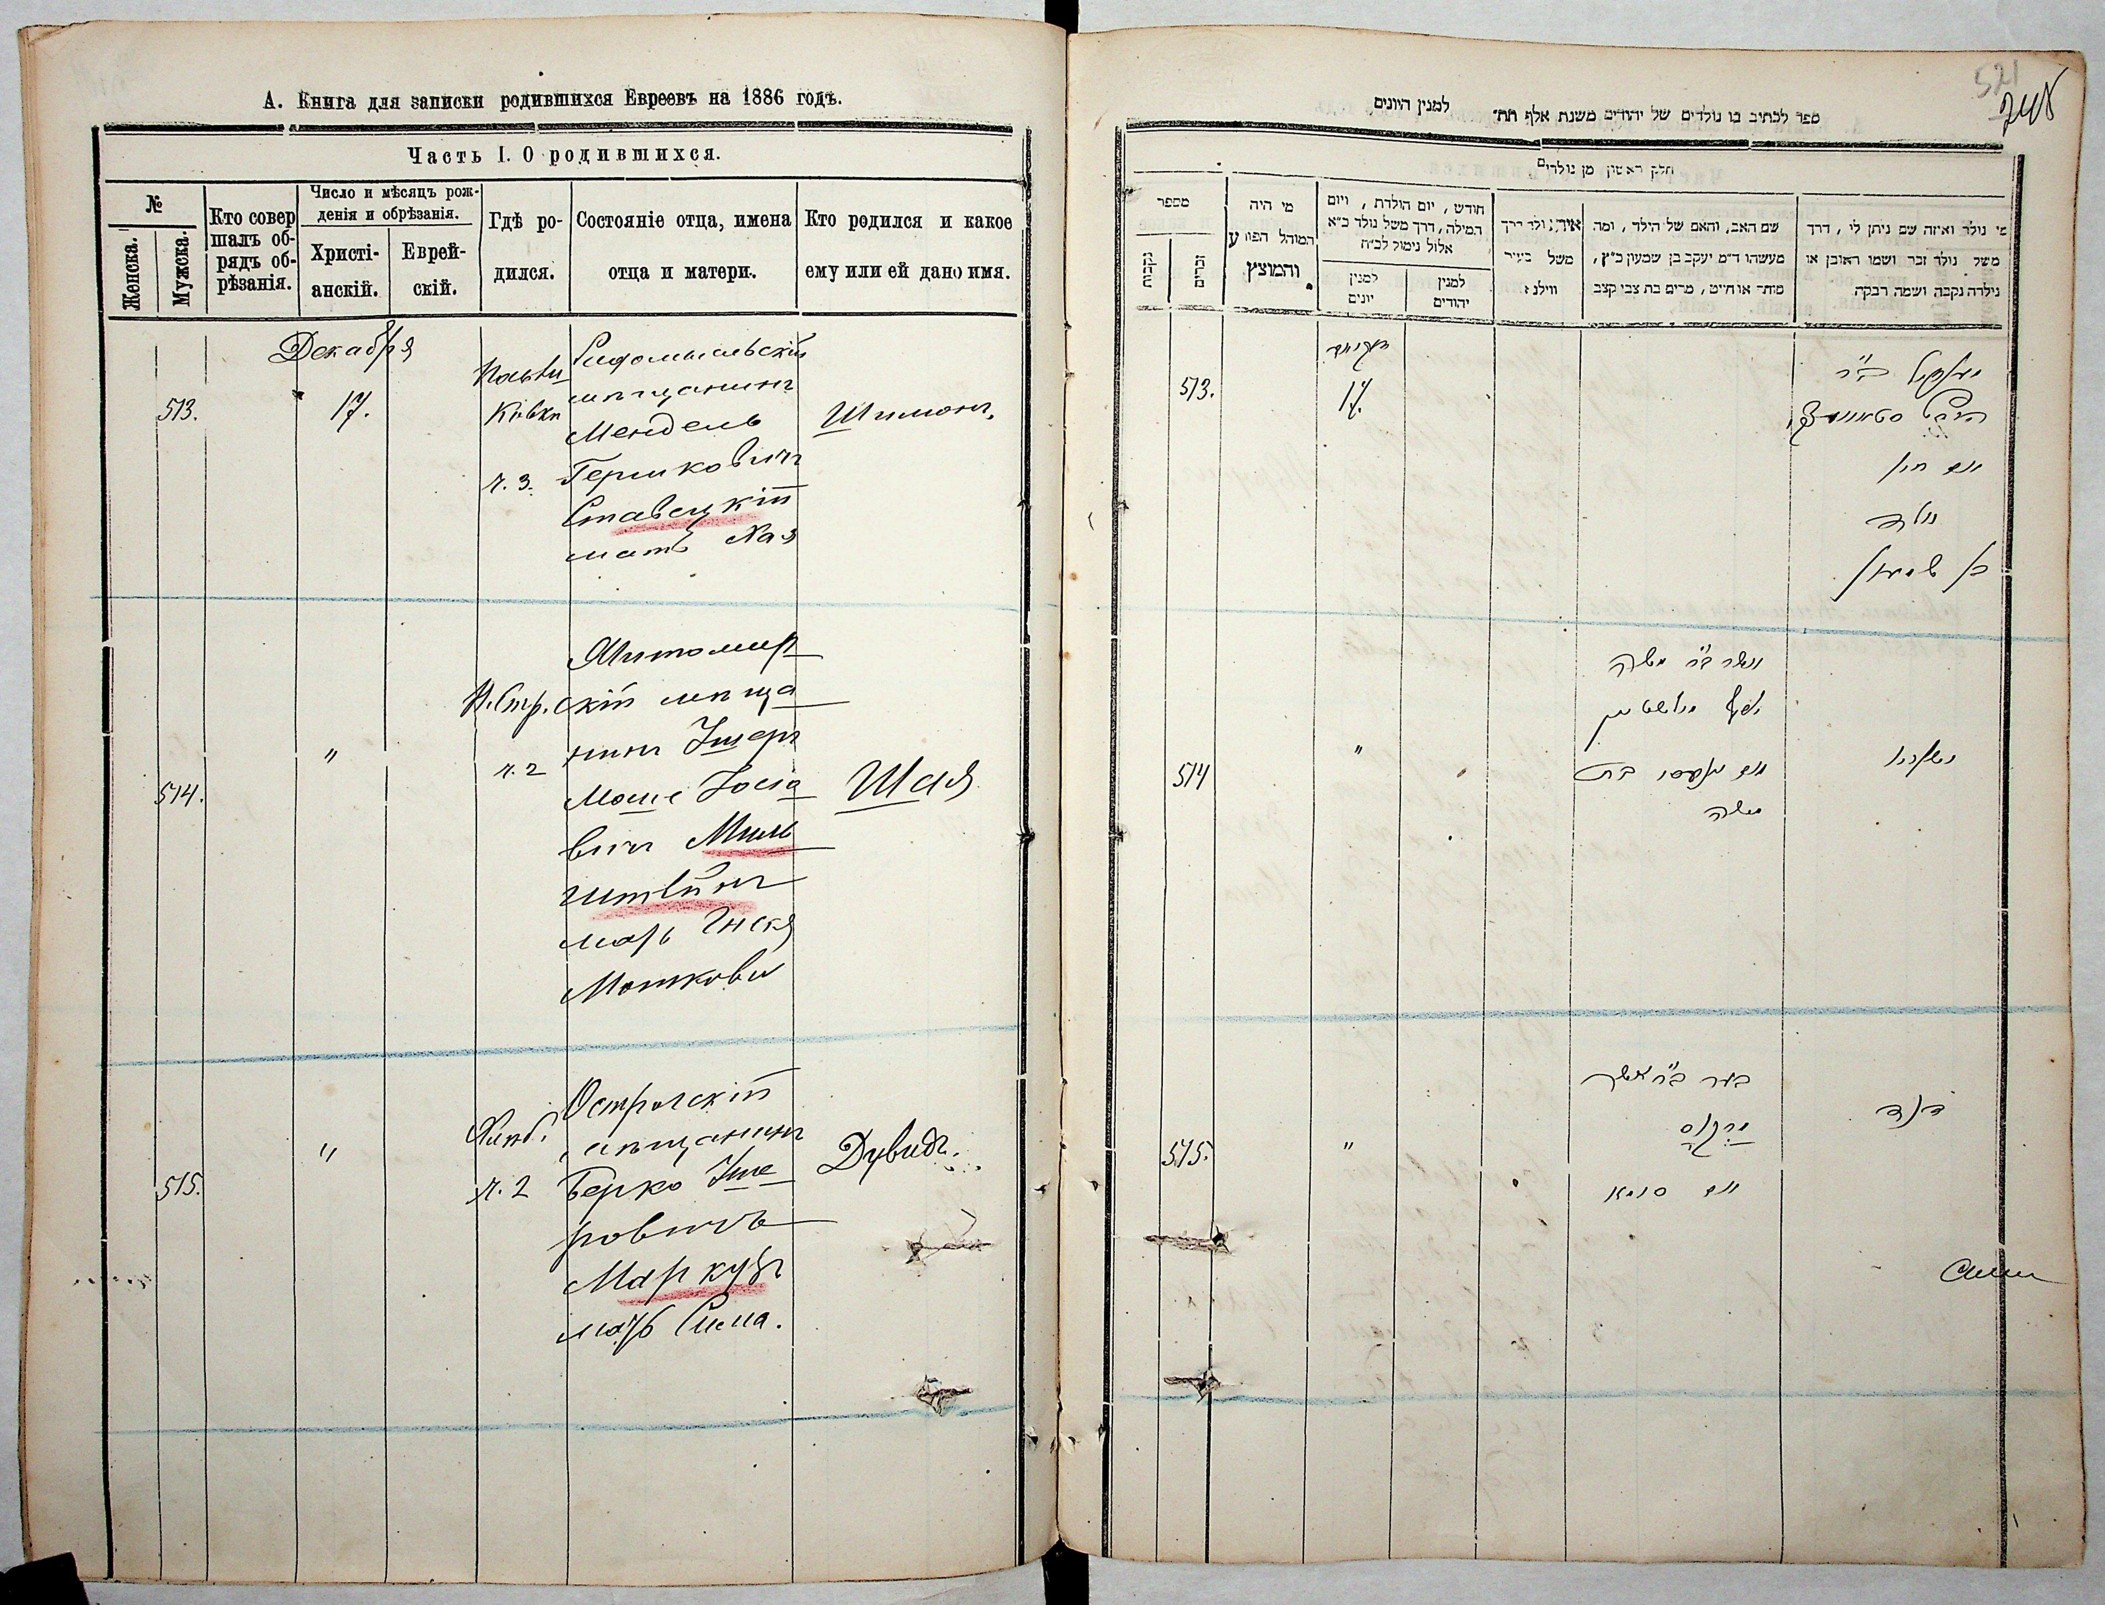 А. Книга для записки родившихся Евреевъ на 1886 годъ.
Часть I. О родившихся.
№
Женска.
Мужска.
Кто совер
шалъ об-
рядъ об-
рѣзанія.
Число и мѣсяцъ рож-
денія и обрѣзанія.
Христі-
анскій.
Еврей-
скій.
Гдѣ ро-
дился.
Состояніе отца, имена
отца и матери.
Кто родился и какое
ему или ей дано имя.
Декабря
513.
17.
ч. 3.
Радомысльскій
мѣщанинъ
Мендель
Гершковичъ
Ставецкій
мать Хая
Шимонъ.
514.
"
ч. 2
Житомир
скій мѣща
нинъ Ушеръ
Моше Іосіо
вичъ Миль
штейнъ
мать
Мошкова
Шая
515.
"
ч. 2
Острогскій
мѣщанинъ
Берко Уше
ровичъ
Маркусъ
мать Сима.
Дувидъ.
521
248
ספר לכתוב בו נולדים של יהודים משנת אלף תת״ למנין היונים
חלק ראשון מן נולדים
מספר
נקבות
זכרים
מי היה
המוהל הפורע
והמוצץ
חודש, יום הולדת, ויום
המילה, דרך משל נולד כ״א
אלול נימול לכ״ח
למנין
יונים
למנין
יהודים
איה נולד דרך
משל בעיר
ווילנא
שם האב, והאם של הילד, ומה
מעשהו ד״מ יעקב בן שמעון כ״ץ,
סוחר או חייט, מרים בת צבי קצב
מי נולד ואיזה שם ניתן לו, דרך
משל נולד זכר ושמו ראובן או
נולדה נקבה ושמה רבקה
513.
17.
ואם חיה
בן שמעון
514
"
אשר ב״ר משה
משה
ישעיה
515.
"
בער ב״ר אשר
מרקוס
ואם סימא
דוד